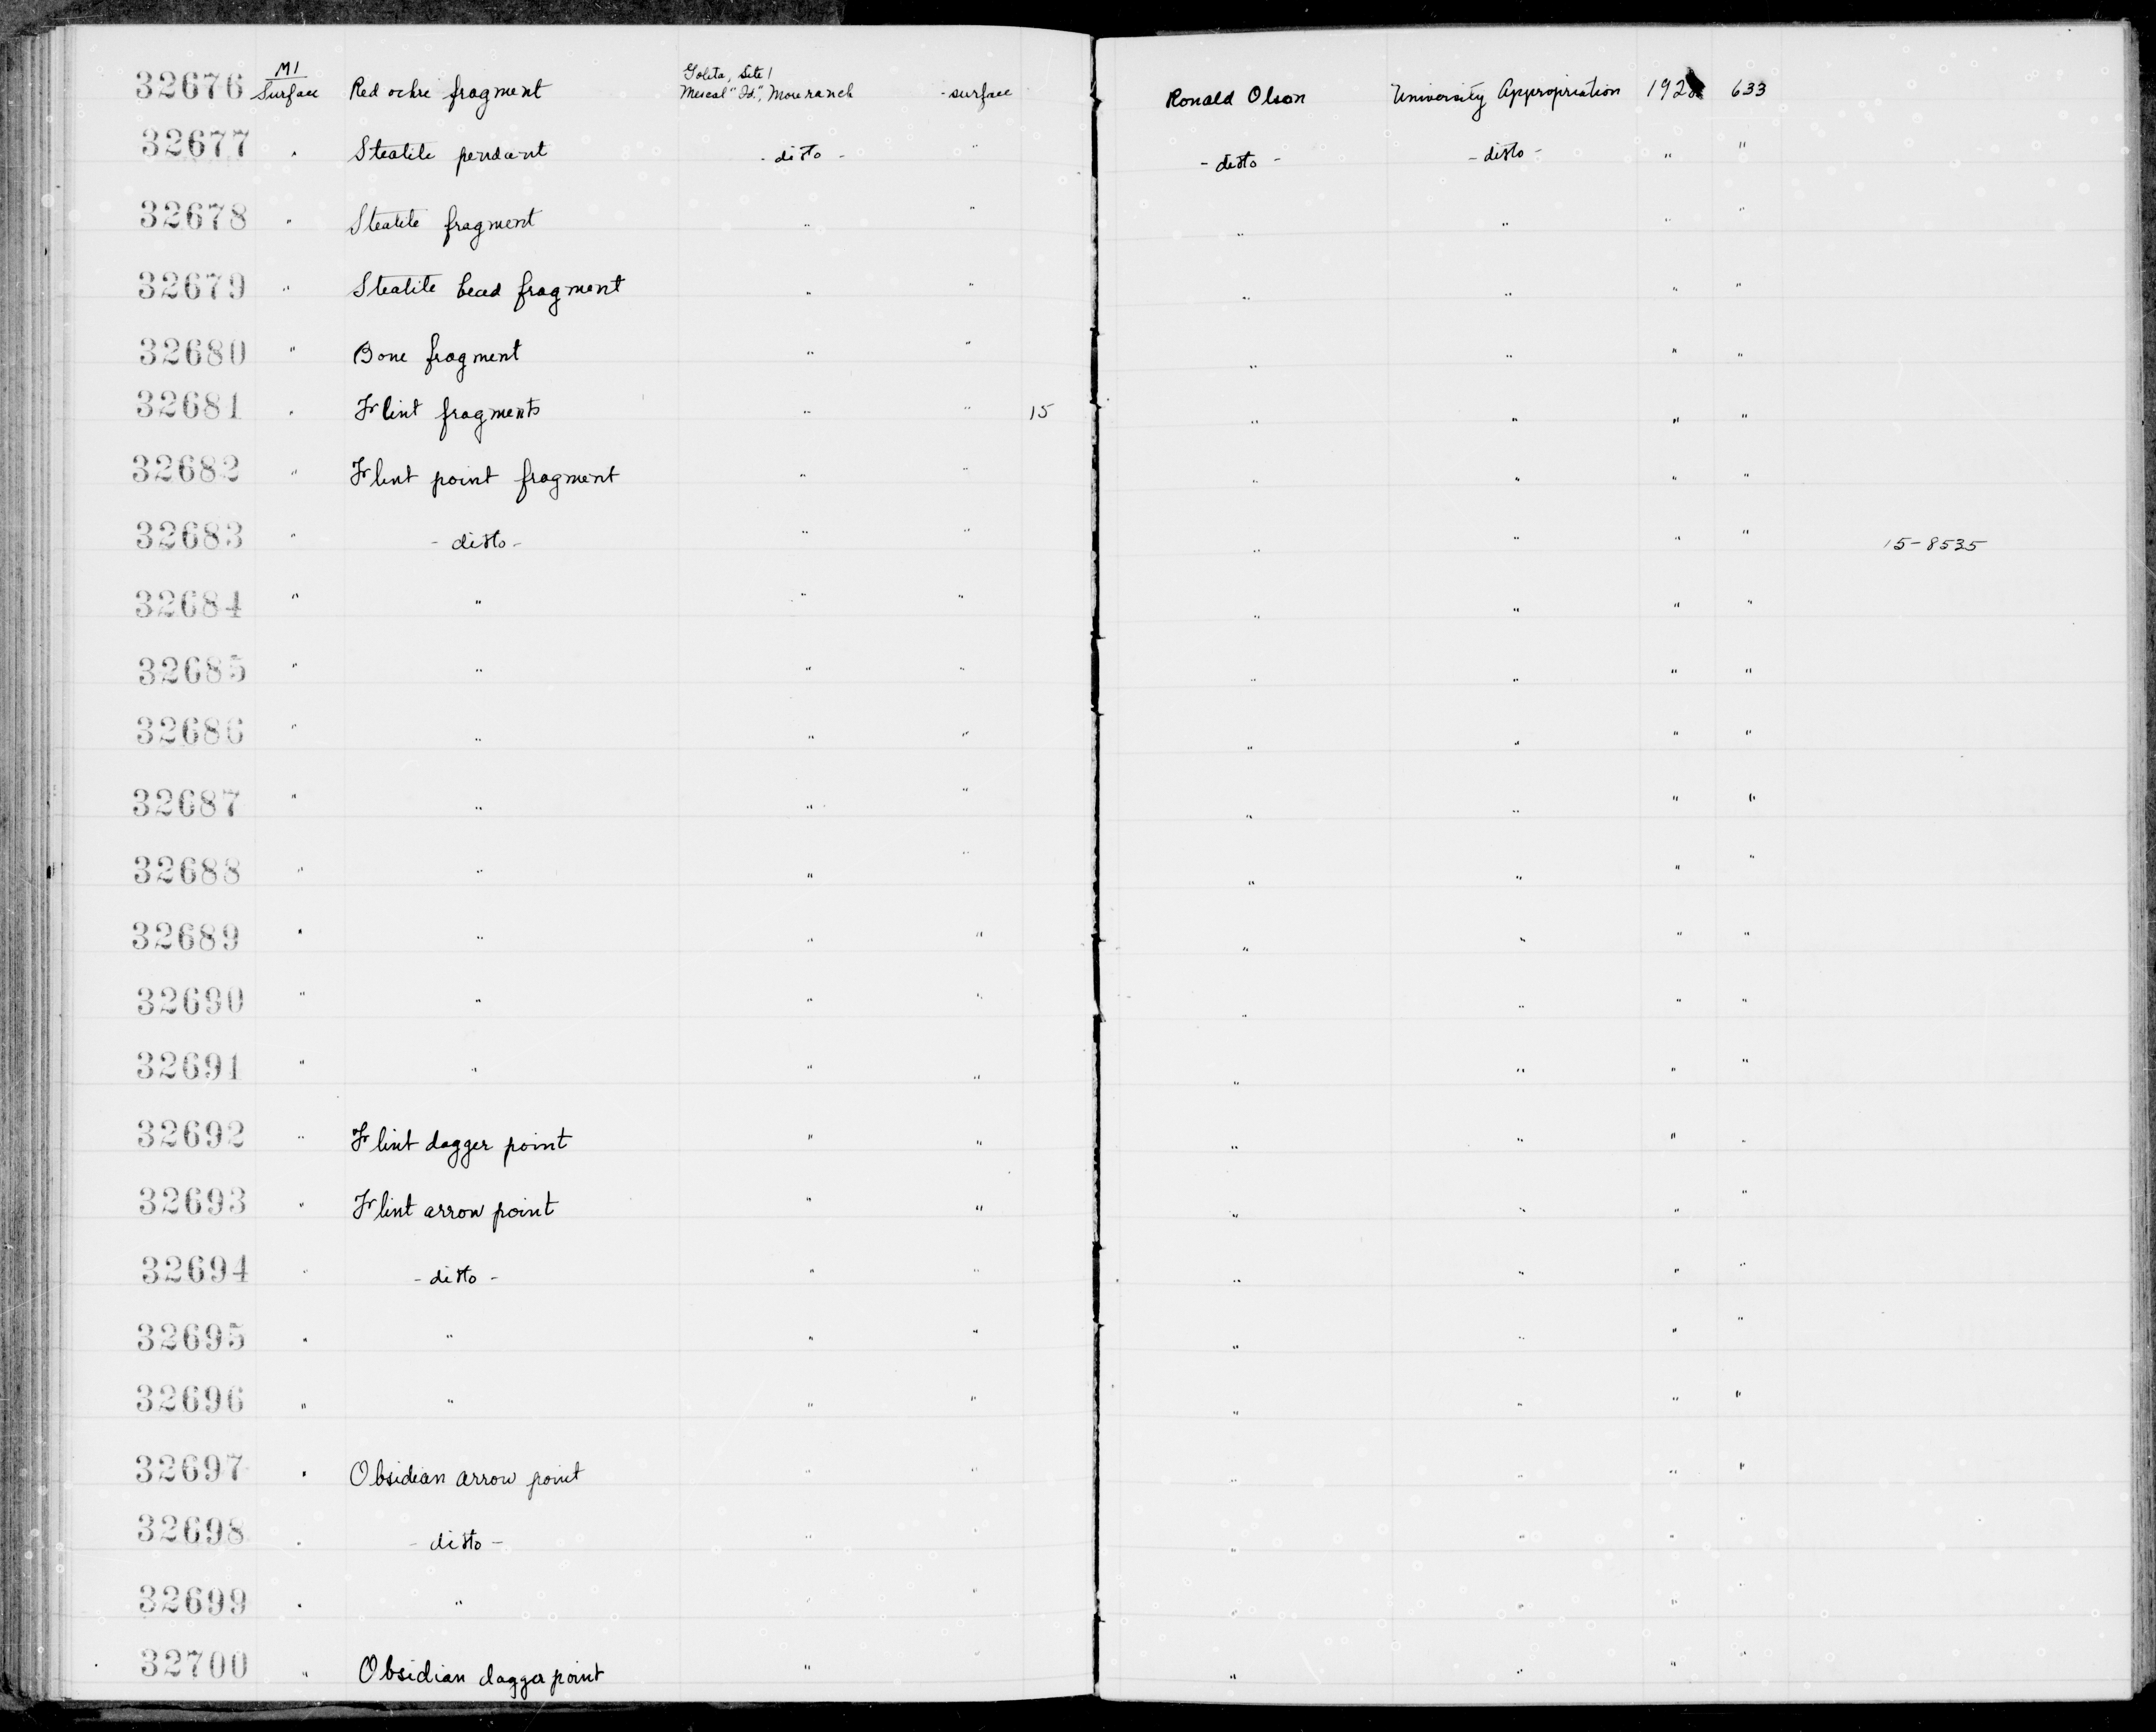 32676 M1 Surface Red ochre fragment Goleta, Site 1 Mescal "Id.", More ranch - surface Ronald Olson University Appropriation 192 633
32677 " Steatite pendant - ditto - " - ditto - - ditto - " "
32678 " Steatite fragment " " " " " "
32679 " Steatite bead fragment " " " " " "
32680 " Bone fragment " " " " " "
32681 " Flint fragments " " 15 " " " "
32682 " Flint point fragment " " " " " "
32683 " - ditto - " " " " " " 15-8535
32684 " " " " " " " "
32685 " " " " " " " "
32686 " " " " " " " "
32687 " " " " " " " "
32688 " " " " " " " "
32689 " " " " " " " "
32690 " " " " " " " "
32691 " " " " " " " "
32692 " Flint dagger point " " " " " "
32693 " Flint arrow point " " " " " "
32694 " - ditto - " " " " " "
32695 " " " " " " " "
32696 " " " " " " " "
32697 " Obsidian arrow point " " " " " "
32698 " - ditto - " " " " " "
32699 " " " " " " " "
32700 " Obsidian dagger point " " " " " "